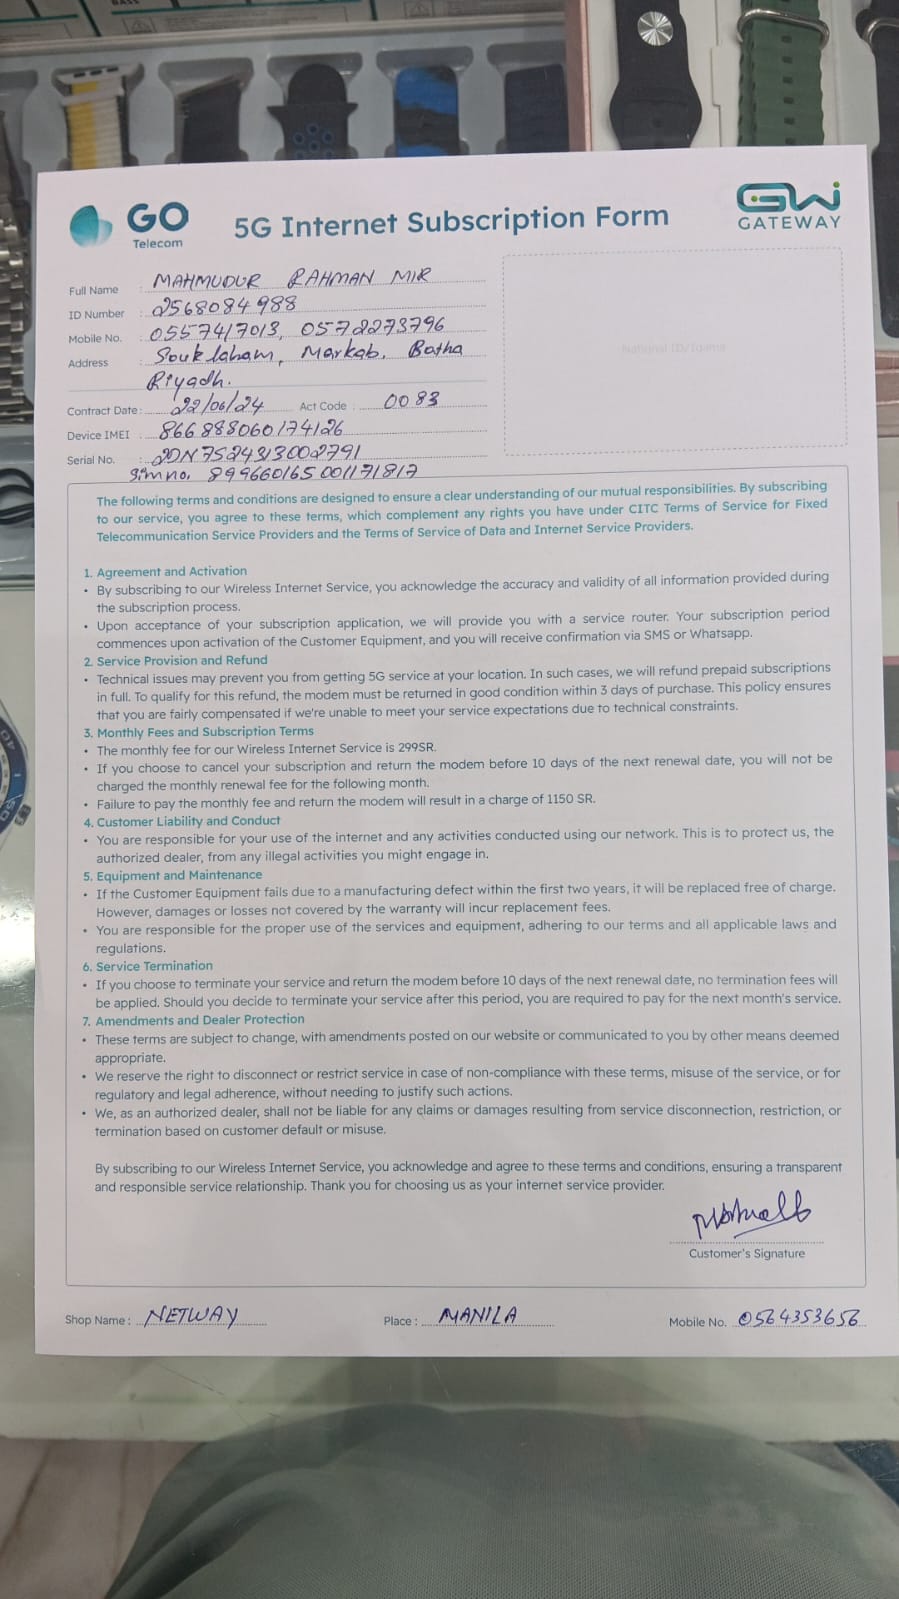 GO
Telecom
5G Internet Subscription Form
GW
GATEWAY
Full Name : MAHMUDUR RAHMAN MIR
ID Number : 2568084988
Mobile No. : 0557417013, 0572273796
Address : Souk laham, Markab, Batha
Riyadh.
National ID/Iqama
Contract Date: 22/06/24 Act Code : 0083
Device IMEI : 866888060174126
Serial No. : 2DN7524313002791
Sim no, 8996601650011171817
The following terms and conditions are designed to ensure a clear understanding of our mutual responsibilities. By subscribing
to our service, you agree to these terms, which complement any rights you have under CITC Terms of Service for Fixed
Telecommunication Service Providers and the Terms of Service of Data and Internet Service Providers.
1. Agreement and Activation
• By subscribing to our Wireless Internet Service, you acknowledge the accuracy and validity of all information provided during
the subscription process.
• Upon acceptance of your subscription application, we will provide you with a service router. Your subscription period
commences upon activation of the Customer Equipment, and you will receive confirmation via SMS or Whatsapp.
2. Service Provision and Refund
• Technical issues may prevent you from getting 5G service at your location. In such cases, we will refund prepaid subscriptions
in full. To qualify for this refund, the modem must be returned in good condition within 3 days of purchase. This policy ensures
that you are fairly compensated if we're unable to meet your service expectations due to technical constraints.
3. Monthly Fees and Subscription Terms
• The monthly fee for our Wireless Internet Service is 299SR.
• If you choose to cancel your subscription and return the modem before 10 days of the next renewal date, you will not be
charged the monthly renewal fee for the following month.
• Failure to pay the monthly fee and return the modem will result in a charge of 1150 SR.
4. Customer Liability and Conduct
• You are responsible for your use of the internet and any activities conducted using our network. This is to protect us, the
authorized dealer, from any illegal activities you might engage in.
5. Equipment and Maintenance
• If the Customer Equipment fails due to a manufacturing defect within the first two years, it will be replaced free of charge.
However, damages or losses not covered by the warranty will incur replacement fees.
• You are responsible for the proper use of the services and equipment, adhering to our terms and all applicable laws and
regulations.
6. Service Termination
• If you choose to terminate your service and return the modem before 10 days of the next renewal date, no termination fees will
be applied. Should you decide to terminate your service after this period, you are required to pay for the next month's service.
7. Amendments and Dealer Protection
• These terms are subject to change, with amendments posted on our website or communicated to you by other means deemed
appropriate.
• We reserve the right to disconnect or restrict service in case of non-compliance with these terms, misuse of the service, or for
regulatory and legal adherence, without needing to justify such actions.
• We, as an authorized dealer, shall not be liable for any claims or damages resulting from service disconnection, restriction, or
termination based on customer default or misuse.
By subscribing to our Wireless Internet Service, you acknowledge and agree to these terms and conditions, ensuring a transparent
and responsible service relationship. Thank you for choosing us as your internet service provider.
Customer's Signature
Shop Name : NETWAY Place : MANILA Mobile No. 0564353656